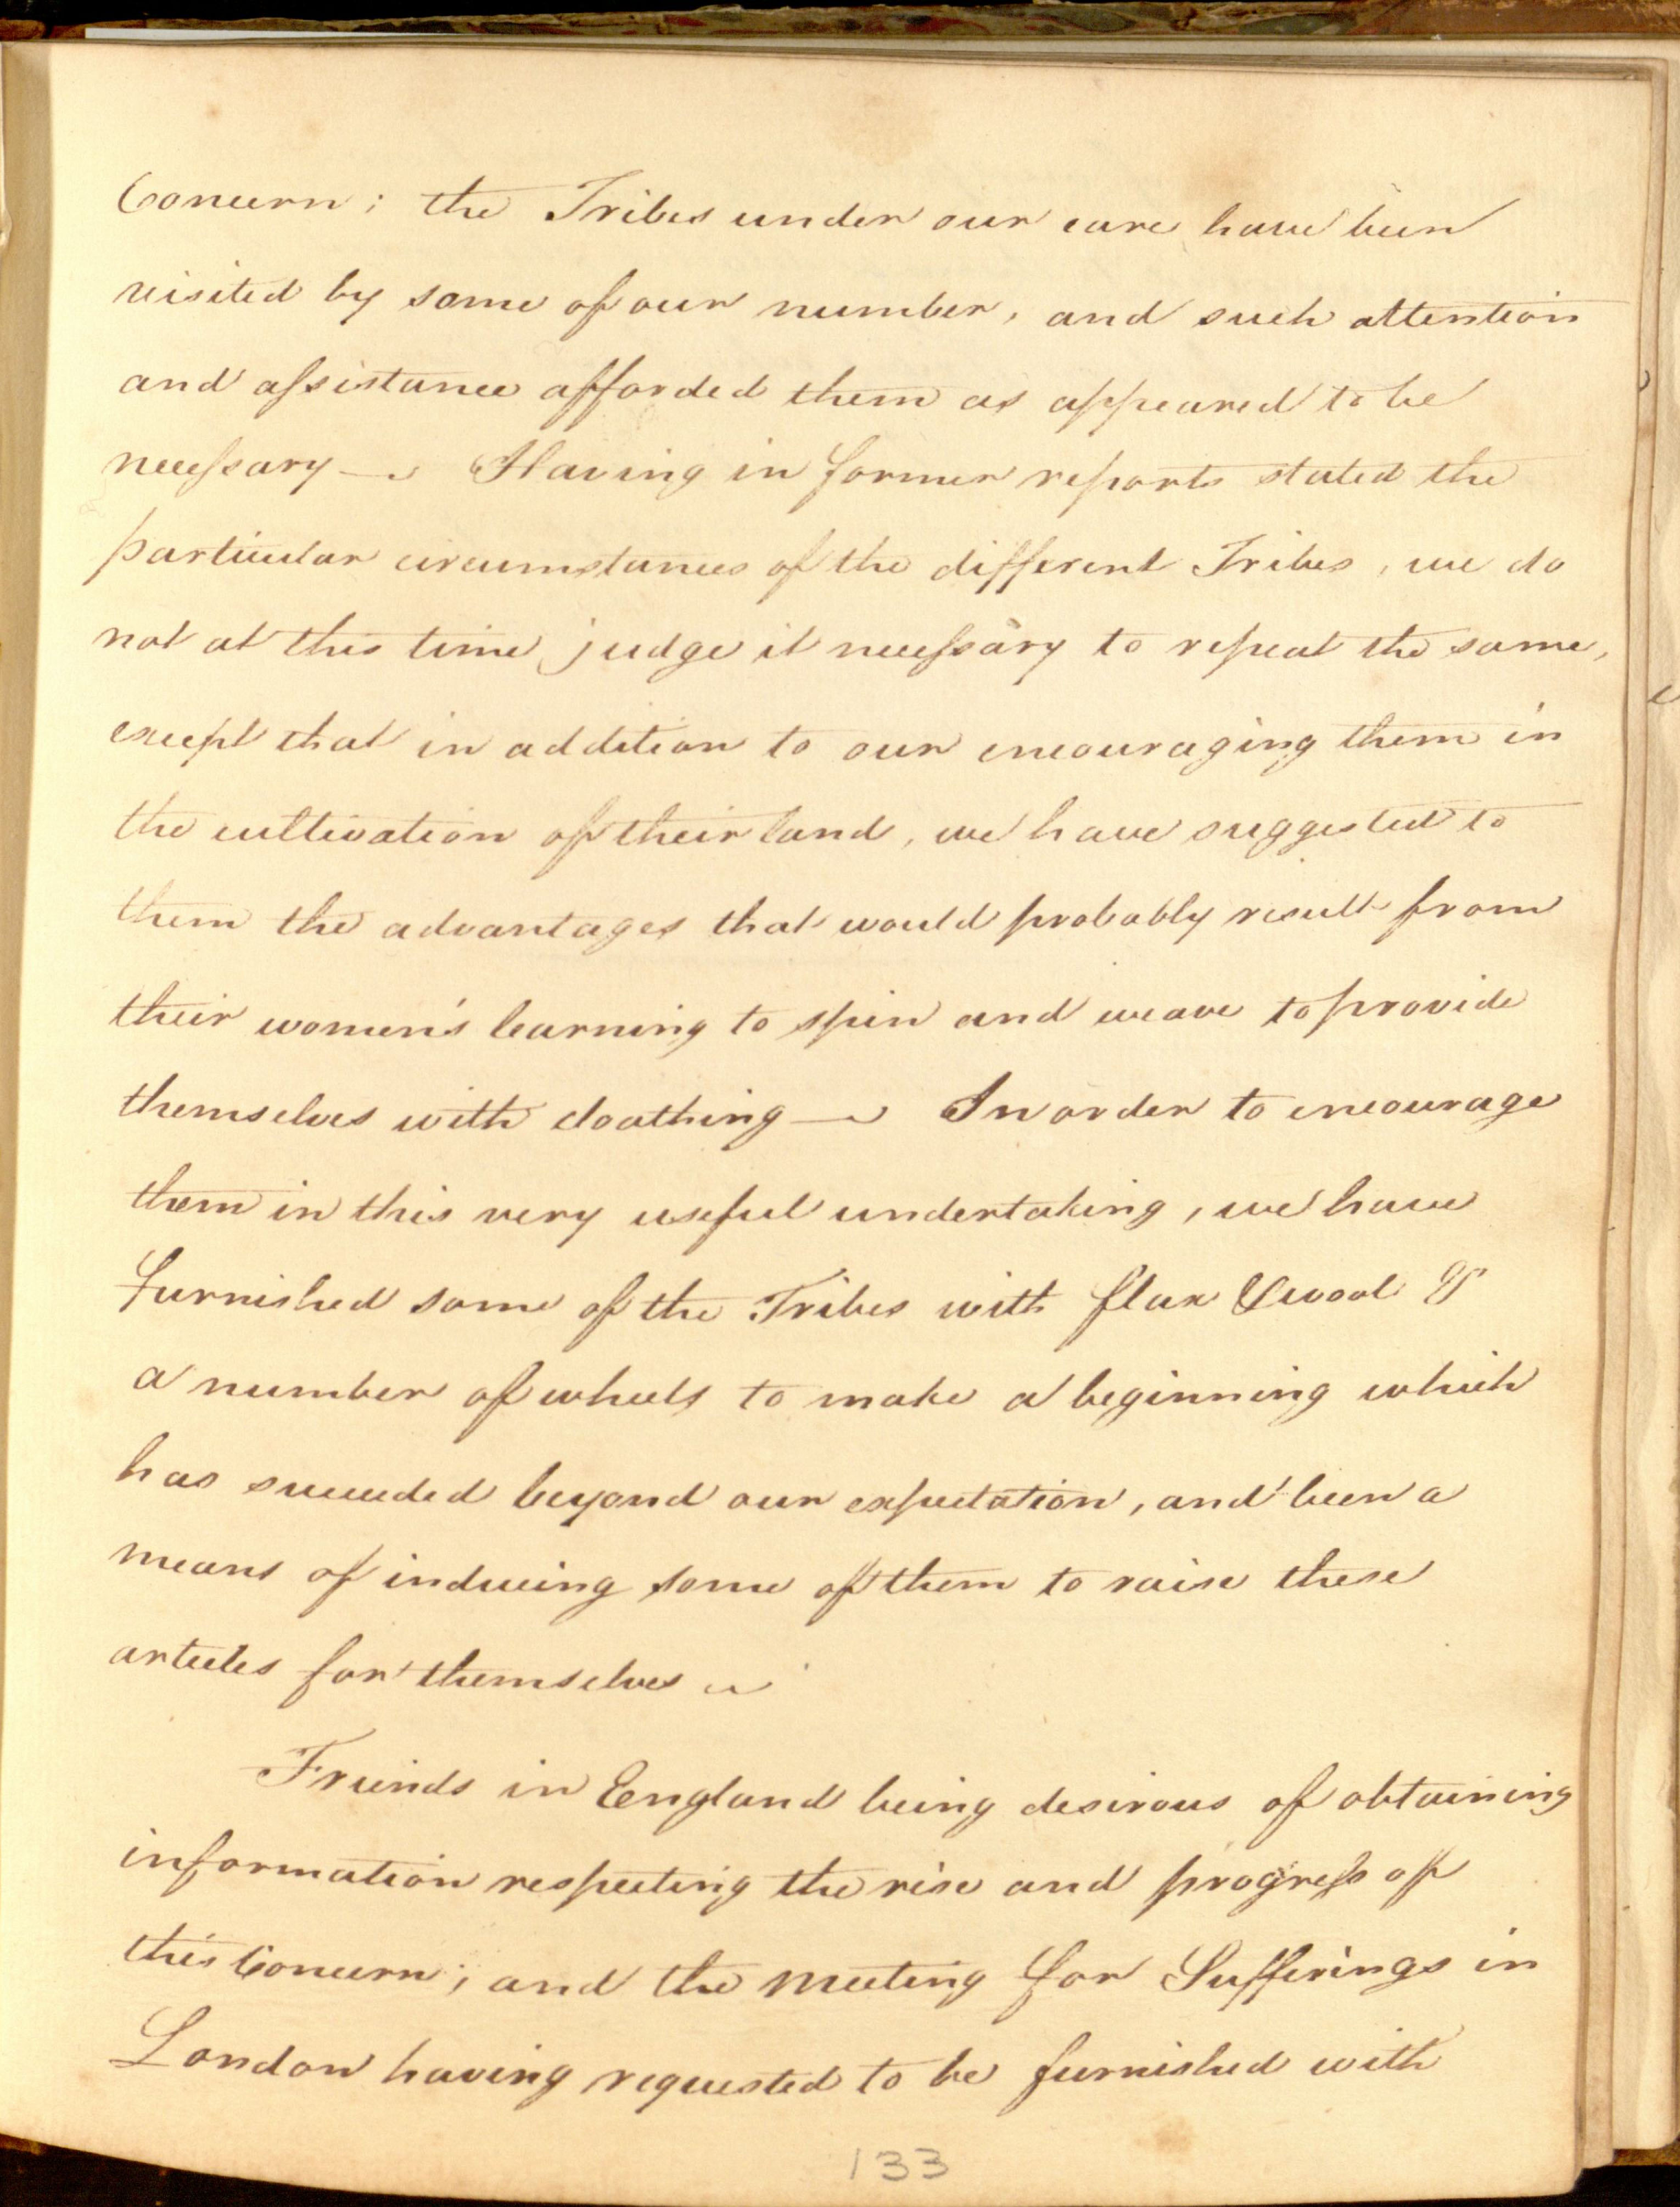 Concern; the Tribes under our care have been
visited by some of our number, and such attention
and assistance afforded them as appeared to be
necessary — Having in former reports stated the
particular circumstances of the different Tribes, we do
not at this time judge it necessary to repeat the same,
except that in addition to our encouraging them in
the cultivation of their land, we have suggested to
them the advantages that would probably result from
their women's learning to spin and weave to provide
themselves with cloathing — In order to encourage
them in this very useful undertaking, we have
furnished some of the Tribes with flax & wool &
a number of wheels to make a beginning which
has succeeded beyond our expectation, and been a
means of inducing some of them to raise these
articles for themselves
Friends in England being desirous of obtaining
information respecting the rise and progress of
this Concern; and the Meeting for Sufferings in
London having requested to be furnished with
133